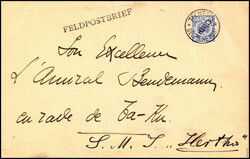 FELDPOSTBRIEF
Son Excellence
L'Amiral Bendemann,
en rade de Ta-Ku
S. M. S. "Hertha"